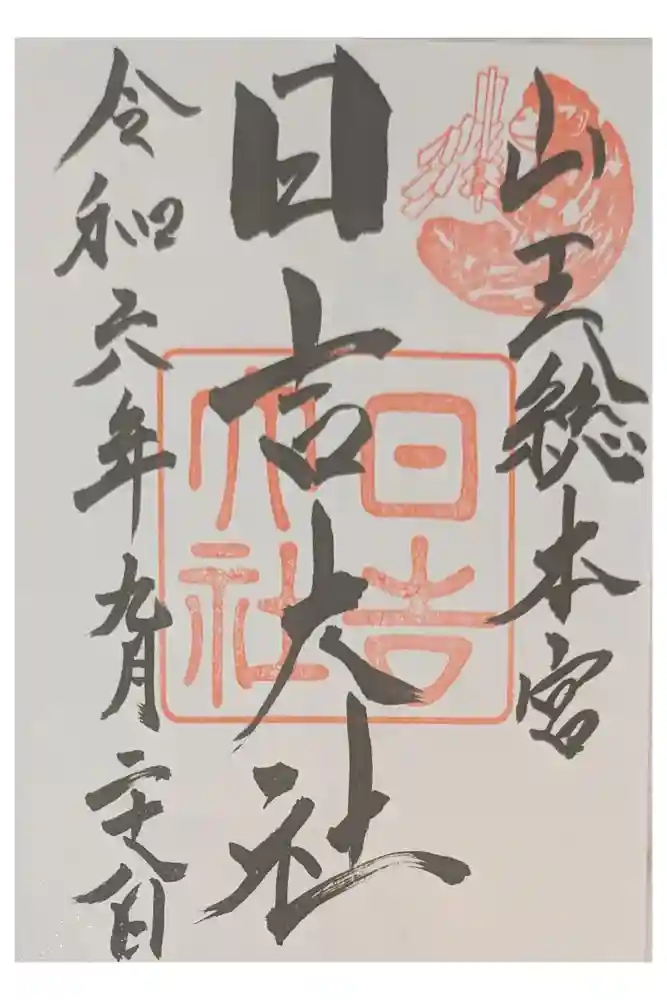 山王総本宮
日吉大社
日吉
大社
令和六年九月二十八日